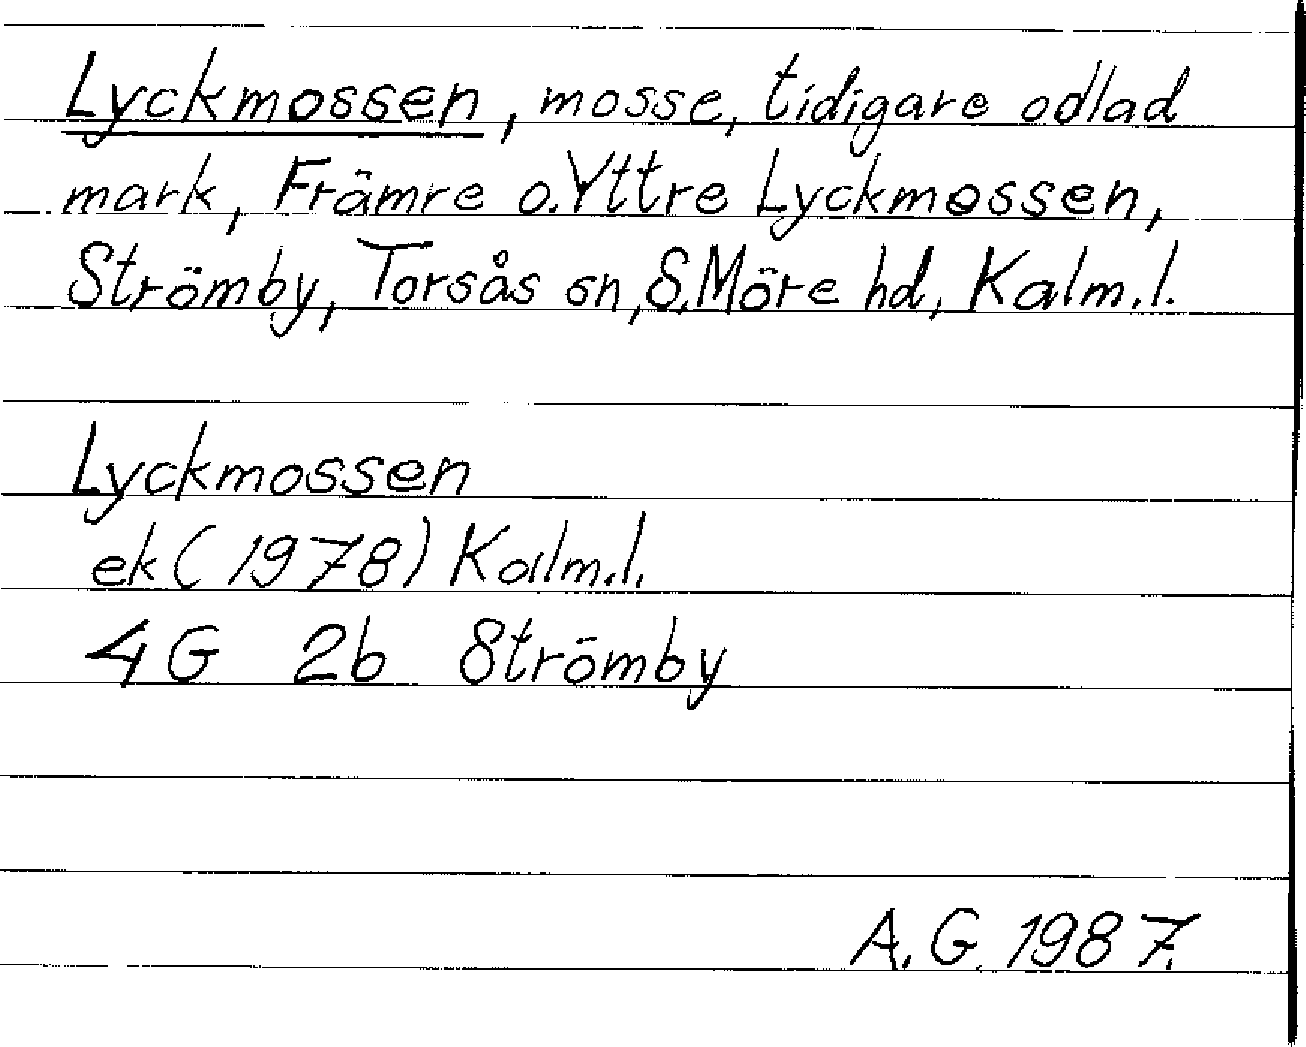 Lyckmossen, mosse, tidigare odlad
mark, Främre o. Yttre Lyckmossen,
Strömby, Torsås sn, S. Möre hd, Kalm. l.
Lyckmossen
ek (1978) Kalm. l.
4G 2b Strömby
A. G. 1987.